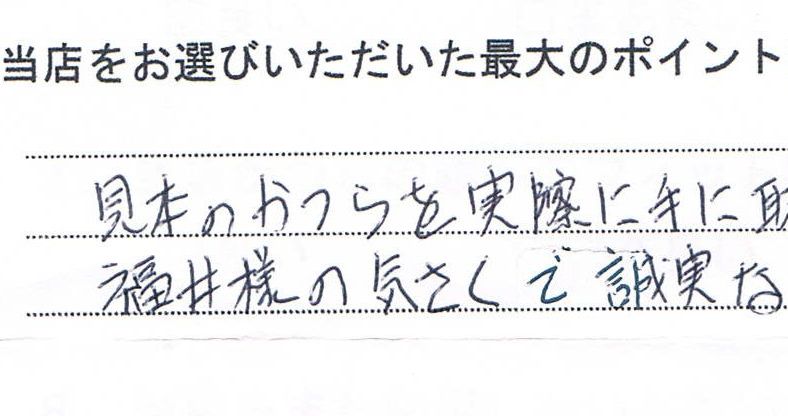 当店をお選びいただいた最大のポイント
見本のかつらを実際に手に取
福井様の気さくで誠実な